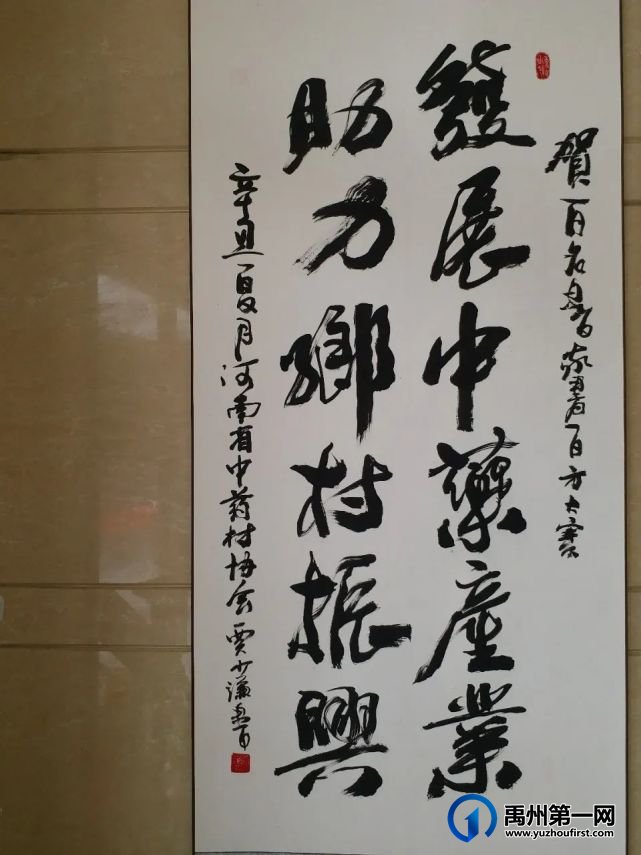 賀百名書家書百方大賽
發展中藥產業
助力鄉村振興
辛丑夏月河南省中药材协会贾少谦书
禹州第一网
www.yuzhoufirst.com